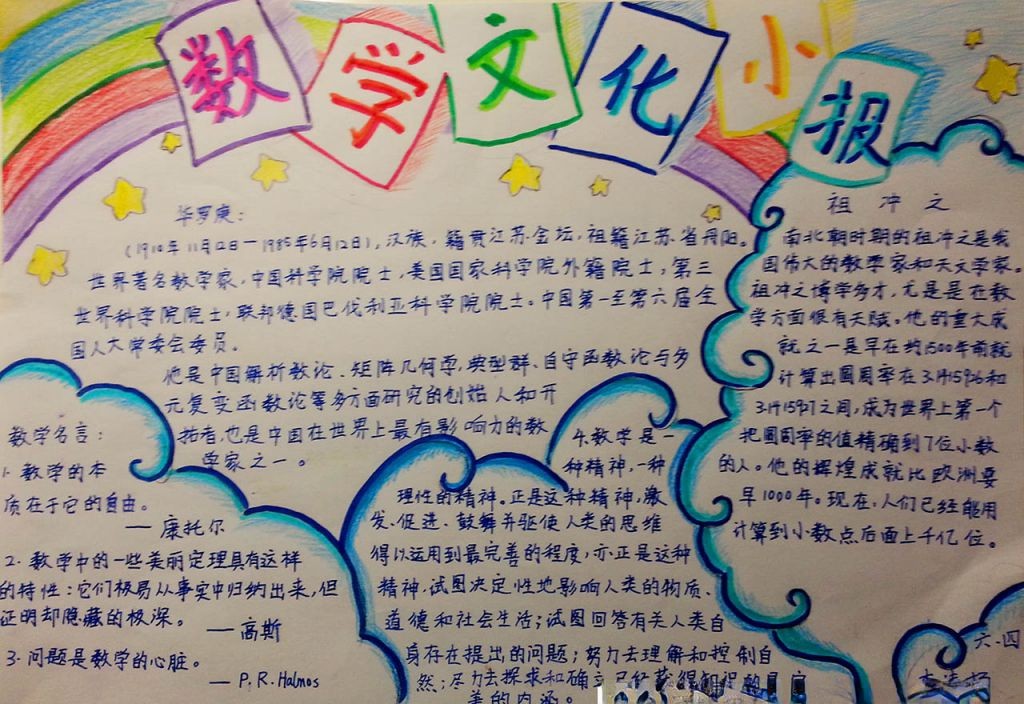 数学文化小报
华罗庚：
（1910年11月12日—1985年6月12日），汉族，籍贯江苏金坛，祖籍江苏省丹阳。
世界著名数学家，中国科学院院士，美国国家科学院外籍院士，第三
世界科学院院士，联邦德国巴伐利亚科学院院士。中国第一至第六届全
国人大常委会委员。
他是中国解析数论、矩阵几何学，典型群、自守函数论与多
元复变函数论等多方面研究的创始人和开
拓者，也是中国在世界上最有影响力的数
学家之一。
数学名言：
1. 数学的本
质在于它的自由。
— 康托尔
2. 数学中的一些美丽定理具有这样
的特性：它们极易从事实中归纳出来，但
证明却隐藏的极深。
— 高斯
3. 问题是数学的心脏。
— P.R.Halmos
4. 数学是一
种精神，一种
理性的精神。正是这种精神，激
发、促进、鼓舞并驱使人类的思维
得以运用到最完善的程度，亦正是这种
精神，试图决定性地影响人类的物质、
道德和社会生活；试图回答有关人类自
身存在提出的问题；努力去理解和控制自
然；尽力去探求和确立已经获得知识的
善的内涵。
祖冲之
南北朝时期的祖冲之是我
国伟大的数学家和天文学家。
祖冲之博学多才，尤是是在数
学方面很有天赋。他的重大成
就之一是早在约1500年前就
计算出圆周率在3.1415926和
3.1415927之间，成为世界上第一个
把圆周率的值精确到7位小数
的人。他的辉煌成就比欧洲要
早1000年。现在，人们已经能用
计算到小数点后面上千亿位。
六.四